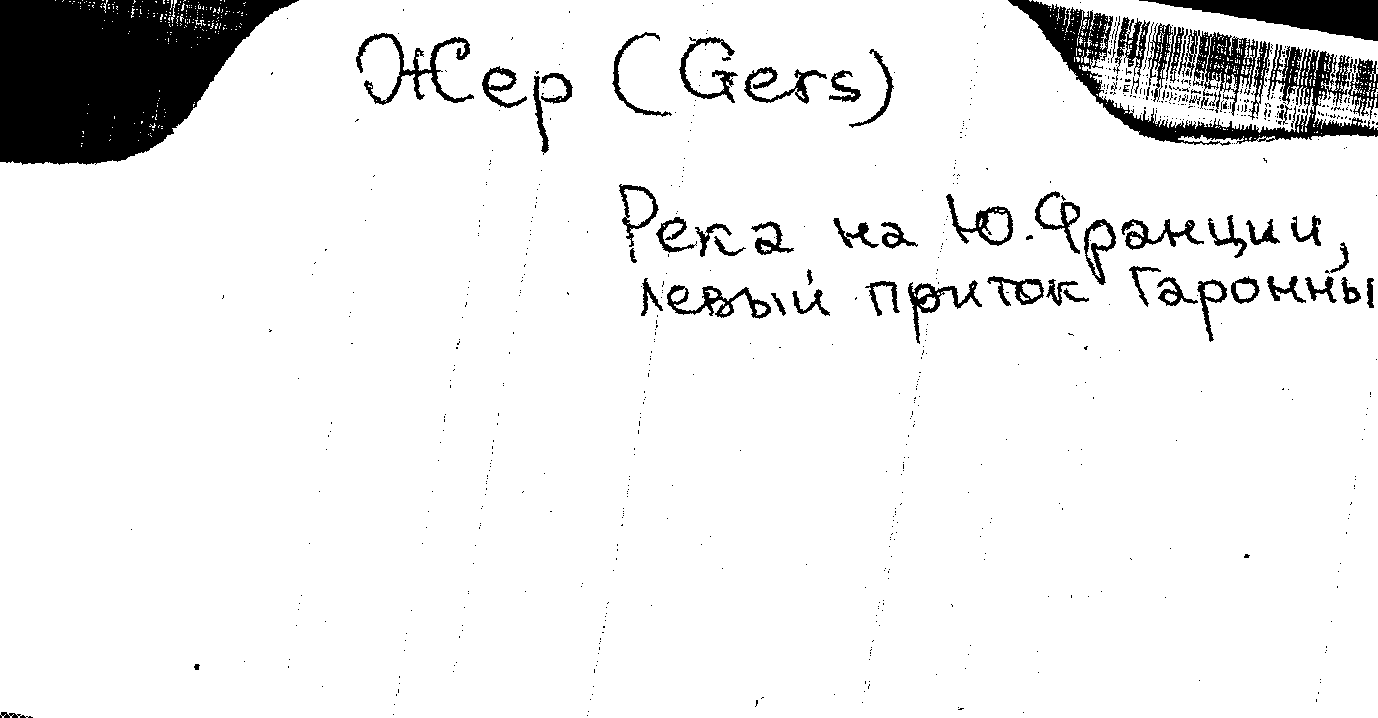 Жер (Gers)
Река на Ю. Франции,
левый приток Гаронны